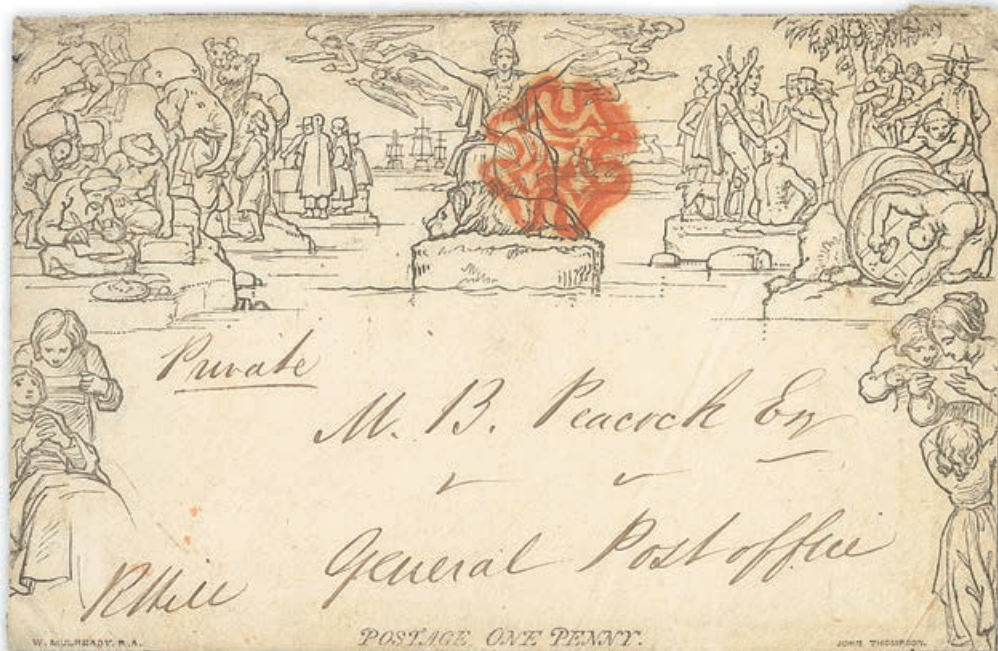 Private
M. B. Peacock Esq
General Post office
RHill
W. MULREADY. R.A.
POSTAGE ONE PENNY.
JOHN THOMPSON.